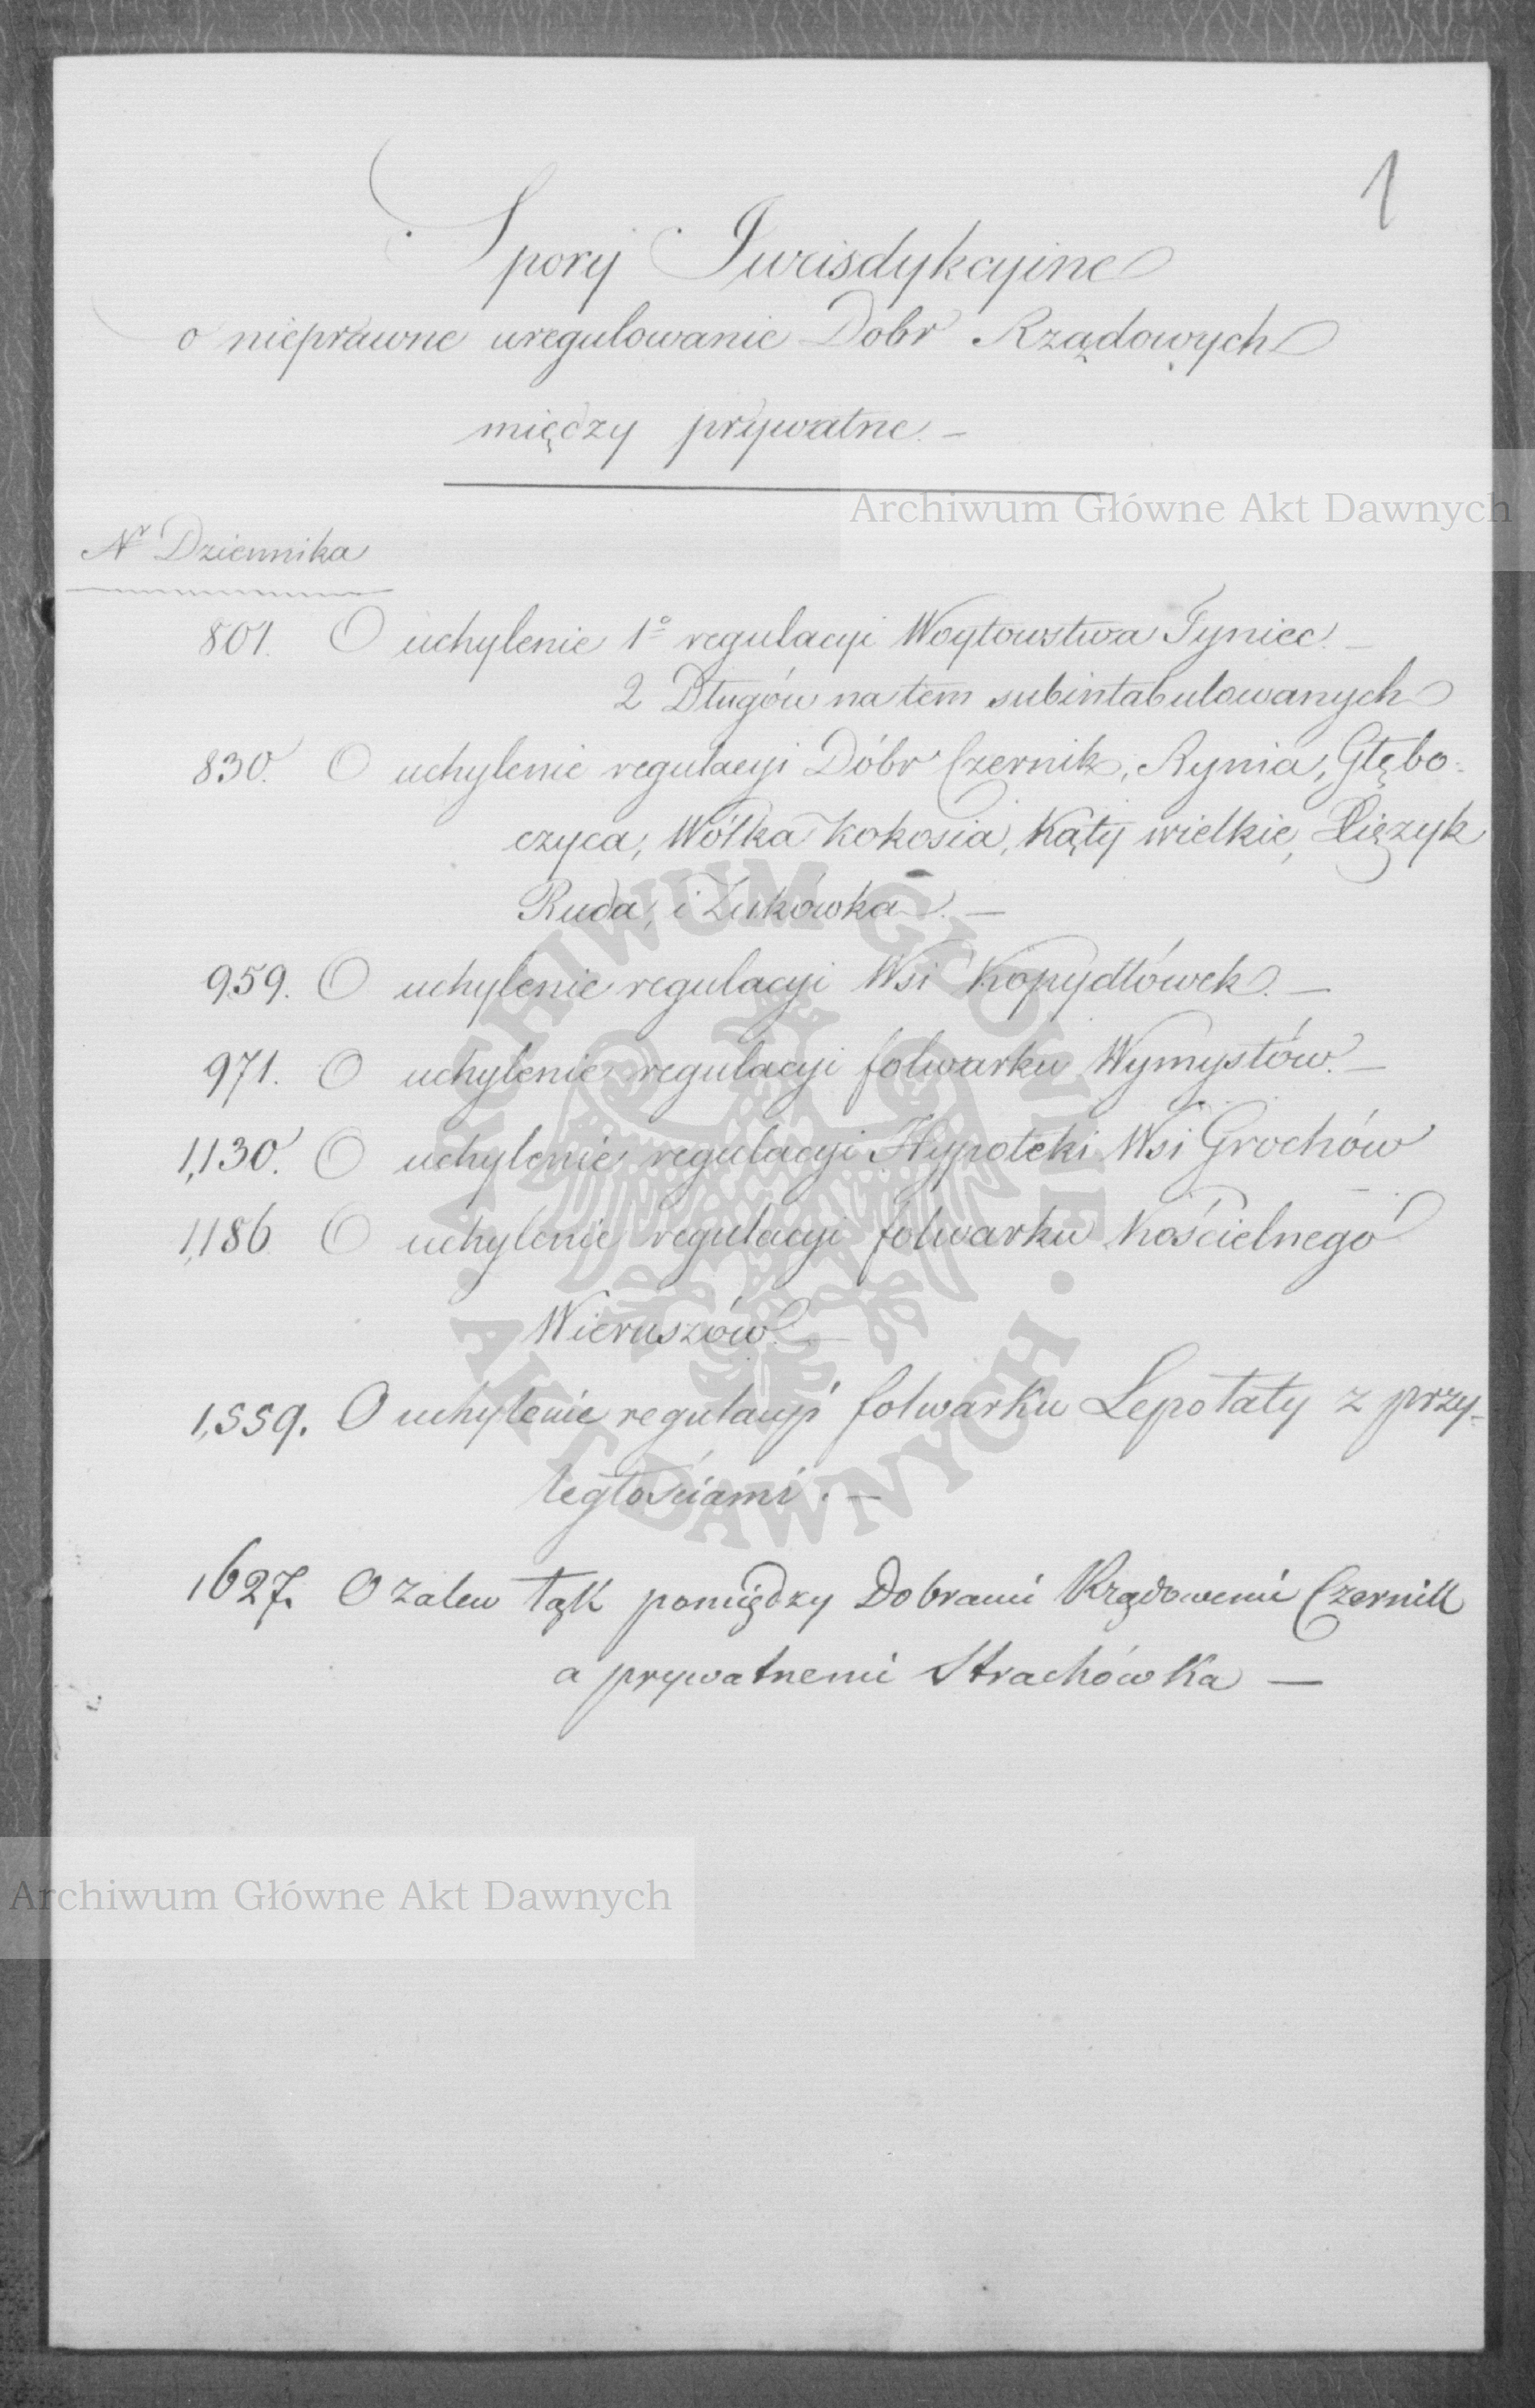 1
Spory Jurisdykcyine
o nieprawne uregulowanie Dobr Rządowych
między prywatne. –
Archiwum Główne Akt Dawnych
Nr Dziennika
801. O uchylenie 1o regulacyi Woytowstwa Tyniec. –
2 Długów na tem subintabulowanych
830. O uchylenie regulacyi Dóbr Czernik, Rynia, Głębo-
czyca, Wólka Kokosia, Kąty wielkie,
Ruda, i Zukówka. –
959. O uchylenie regulacyi Wsi Kopydłówek. –
971. O uchylenie regulacyi folwarku Wymysłów. –
1,130. O uchylenie regulacyi Hypoteki Wsi Grochów
1,186 O uchylenie regulacyi folwarku Kościelnego
Wieruszów. –
1,559. O uchylenie regulacyi folwarku Lepołaty z przy-
ległościami. –
1627. O zalew łąk pomiędzy Dobrami Rządowemi Czernik
a prywatnemi Strachówka –
ARCHIWUM GŁÓWNE
AKT DAWNYCH
Archiwum Główne Akt Dawnych